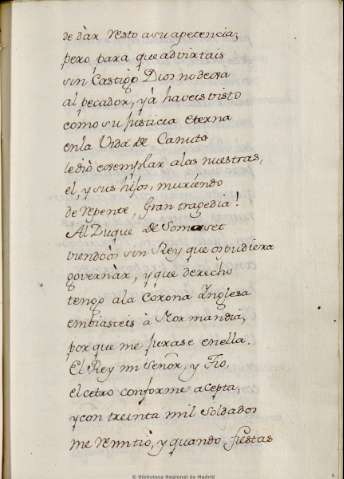 de dàr resto a su apetencia;
pero para que advirtais
sin Castigo Dios no deva
al pecador, yà haveis visto
como su justicia eterna
en la Vida de Canuto
le diò exemplar a las nuestras,
el, y sus hijos, muriendo
de repente, gran tragedia!
Al Duque de Somerset
viendoos sin Rey que os pudiera
governàr, y que derecho
tengo a la Corona Ynglesa
embiasteis à Normandia,
por que me jurase en ella.
El Rey mi Señor, y Tio,
el cetro conforme acepta,
y con treinta mil Soldados
me remitiò, y quando fiestas
© Biblioteca Regional de Madrid